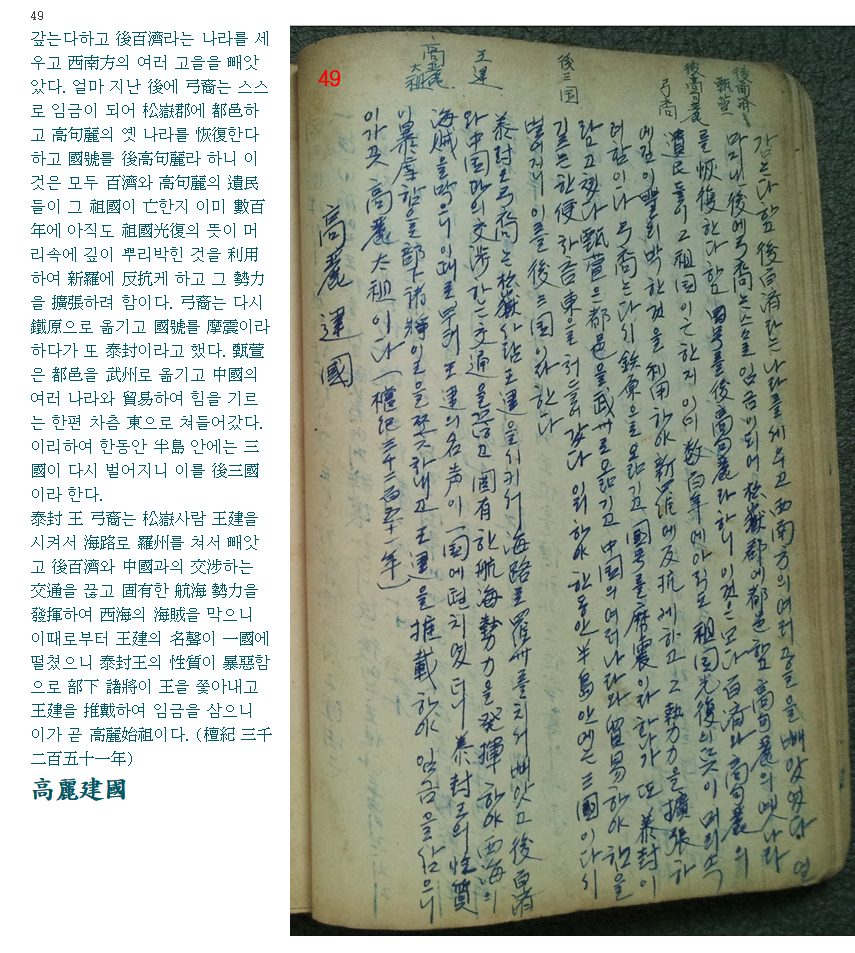 49
갚는다하고 後百濟라는 나라를 세
우고 西南方의 여러 고을을 빼앗
았다. 얼마 지난 後에 弓裔는 스스
로 임금이 되어 松嶽郡에 都邑하
고 高句麗의 옛 나라를 恢復한다
하고 國號를 後高句麗라 하니 이
것은 모두 百濟와 高句麗의 遺民
들이 그 祖國이 亡한지 이미 數百
年에 아직도 祖國光復의 뜻이 머
리속에 깊이 뿌리박힌 것을 利用
하여 新羅에 反抗케 하고 그 勢力
을 擴張하려 함이다. 弓裔는 다시
鐵原으로 옮기고 國號를 摩震이라
하다가 또 泰封이라고 했다. 甄萱
은 都邑을 武州로 옮기고 中國의
여러 나라와 貿易하여 힘을 기르
는 한편 차츰 東으로 쳐들어갔다.
이리하여 한동안 半島 안에는 三
國이 다시 벌어지니 이를 後三國
이라 한다.
泰封 王 弓裔는 松嶽사람 王建을
시켜서 海路로 羅州를 쳐서 빼앗
고 後百濟와 中國과의 交涉하는
交通을 끊고 固有한 航海 勢力을
發揮하여 西海의 海賊을 막으니
이때로부터 王建의 名聲이 一國에
떨쳤으니 泰封王의 性質이 暴惡함
으로 部下 諸將이 王을 쫓아내고
王建을 推戴하여 임금을 삼으니
이가 곧 高麗始祖이다. (檀紀 三千
二百五十一年)
高麗建國
49
後百済
甄萱
後高句麗
弓裔
後三国
王建
高麗
太祖
갚는다함 後百済라는 나라를 세우고 西南方의 여러 골을 빼앗엇다 얼
마지내 後에 弓裔는 스스로 임금이 되여 松嶽郡에 都邑함 高句麗의 옛나라
를 恢復한다함 國号를 後高句麗라 하니 이것은 모다 百済와 高句麗의
遺民들이 그 祖国이 亡한지 이미 数百年에 아직도 祖国光復의 뜻이 머리속
에 깊이 뿌리박힌것을 利用하야 新羅에 反抗케하고 그 勢力을 擴張하
려함이다 弓裔는 다시 鉄原으로 옴기고 國号를 摩震이라 하다가 또 泰封이
라고 했다 甄萱은 都邑을 武州로 옴기고 中國의 여러나라와 貿易하야 힘을
길으는 한便 차츰 東으로 처들어갔다 이리하야 한동안 半島안에는 三國이 다시
벌어지니 이를 後三国이라 한다
泰封王 弓裔는 松嶽사람 王建을 시키서 海路로 羅州를 치서 빼앗고 後百済
와 中国과의 交渉하는 交通을 끊고 固有한 航海勢力을 発揮하야 西海의
海賊을 막으니 이때로부터 王建의 名声이 一国에 떨치엿드니 泰封王의 性質
이 暴虐함으로 部下諸将이 王을 쫓아내고 王建을 推戴하야 임금을 삼으니
이가 곳 高麗太祖이다 (檀紀三千二百五十一年)
高麗建國